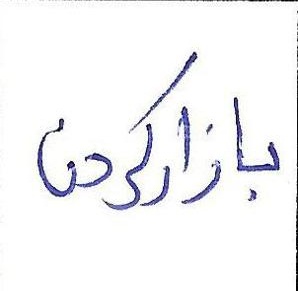 بازارکردن